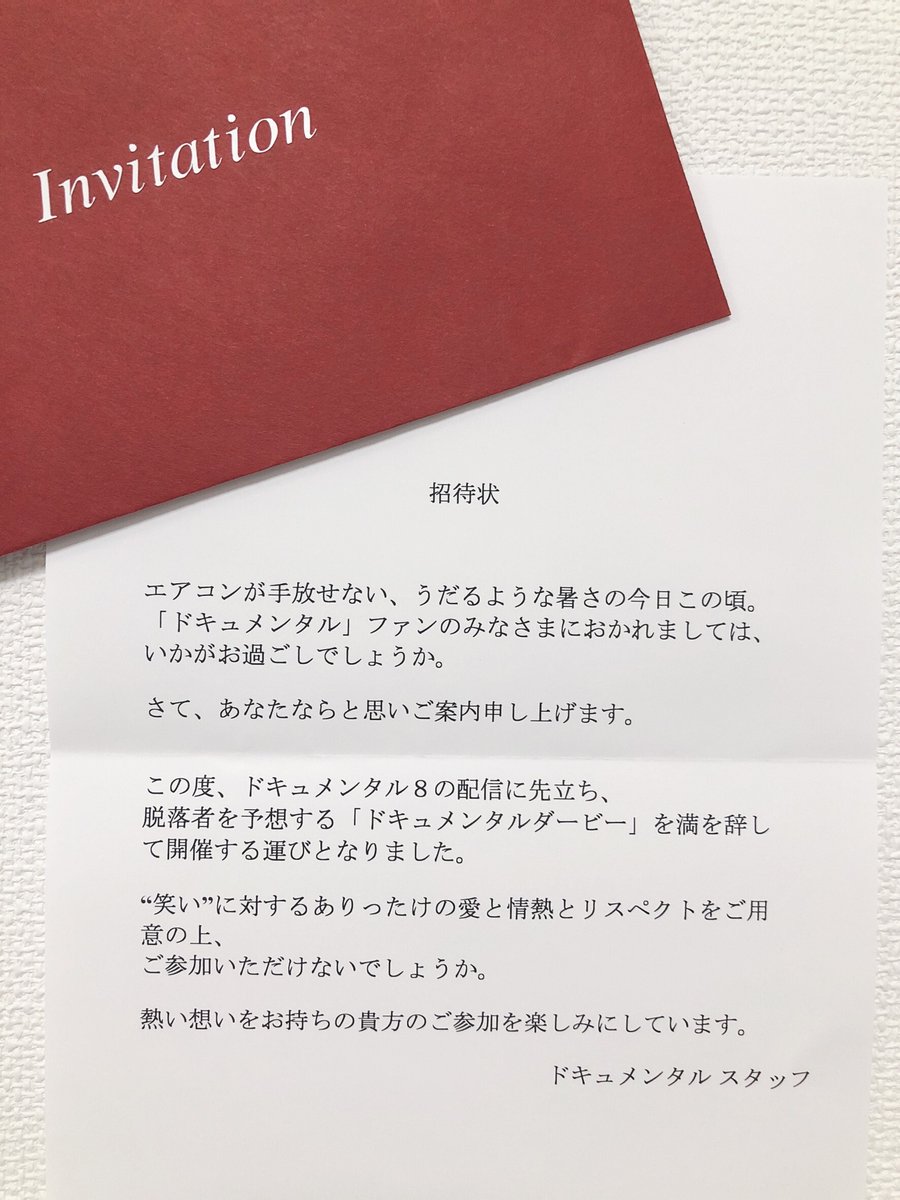 Invitation
招待状
エアコンが手放せない、うだるような暑さの今日この頃。
「ドキュメンタル」ファンのみなさまにおかれましては、
いかがお過ごしでしょうか。
さて、あなたならと思いご案内申し上げます。
この度、ドキュメンタル８の配信に先立ち、
脱落者を予想する「ドキュメンタルダービー」を満を辞し
て開催する運びとなりました。
“笑い”に対するありったけの愛と情熱とリスペクトをご用
意の上、
ご参加いただけないでしょうか。
熱い想いをお持ちの貴方のご参加を楽しみにしています。
ドキュメンタル スタッフ